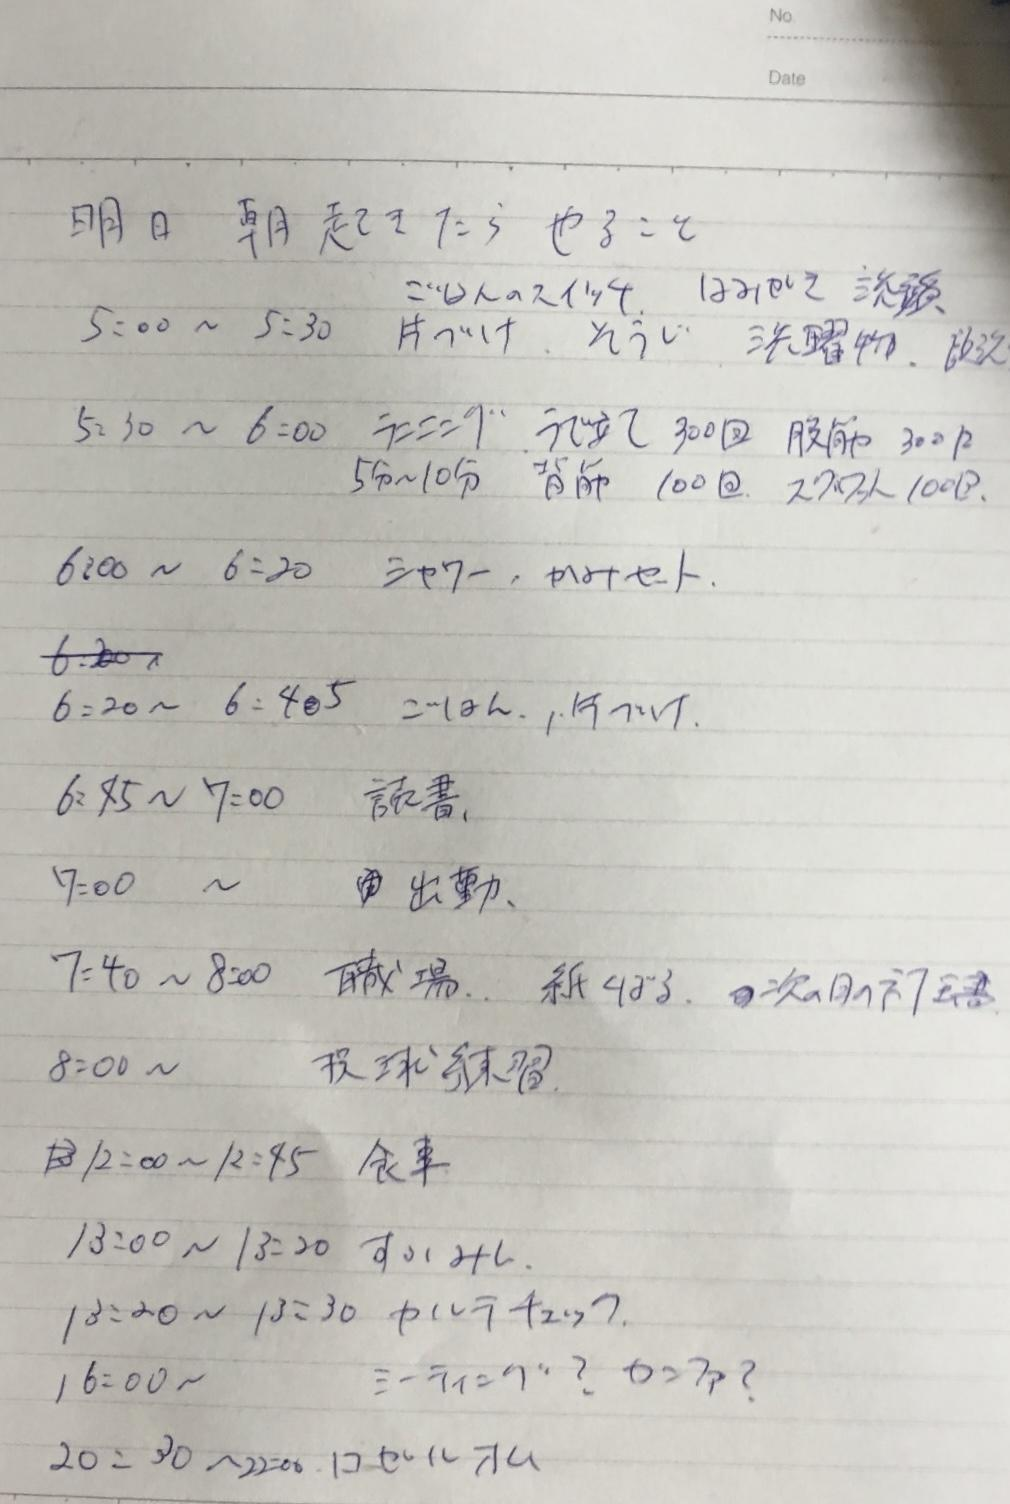 No.
Date
明日 朝 起てきたら やること
ごはんのスイッチ、はみがき 洗顔、
5:00 ～ 5:30 片づけ、そうじ 洗曜物、
5:30 ～ 6:00 ランニング うで立て 300回 腹筋 300回
5分～10分 背筋 100回 スクワット 100回、
6:00 ～ 6:20 シャワー、かみセット、
6:20～ 6:45 ごはん、片づけ、
6:45～7:00 読書、
7:00 ～ 出勤、
7:40～8:00 職場、紙くばる、次の日の
8:00～ 投球練習、
12:00～12:45 食事
13:00～13:20 すいみん、
13:20～13:30 カルテチェック、
16:00～ ミーティング? カンファ?
20:30～22:00